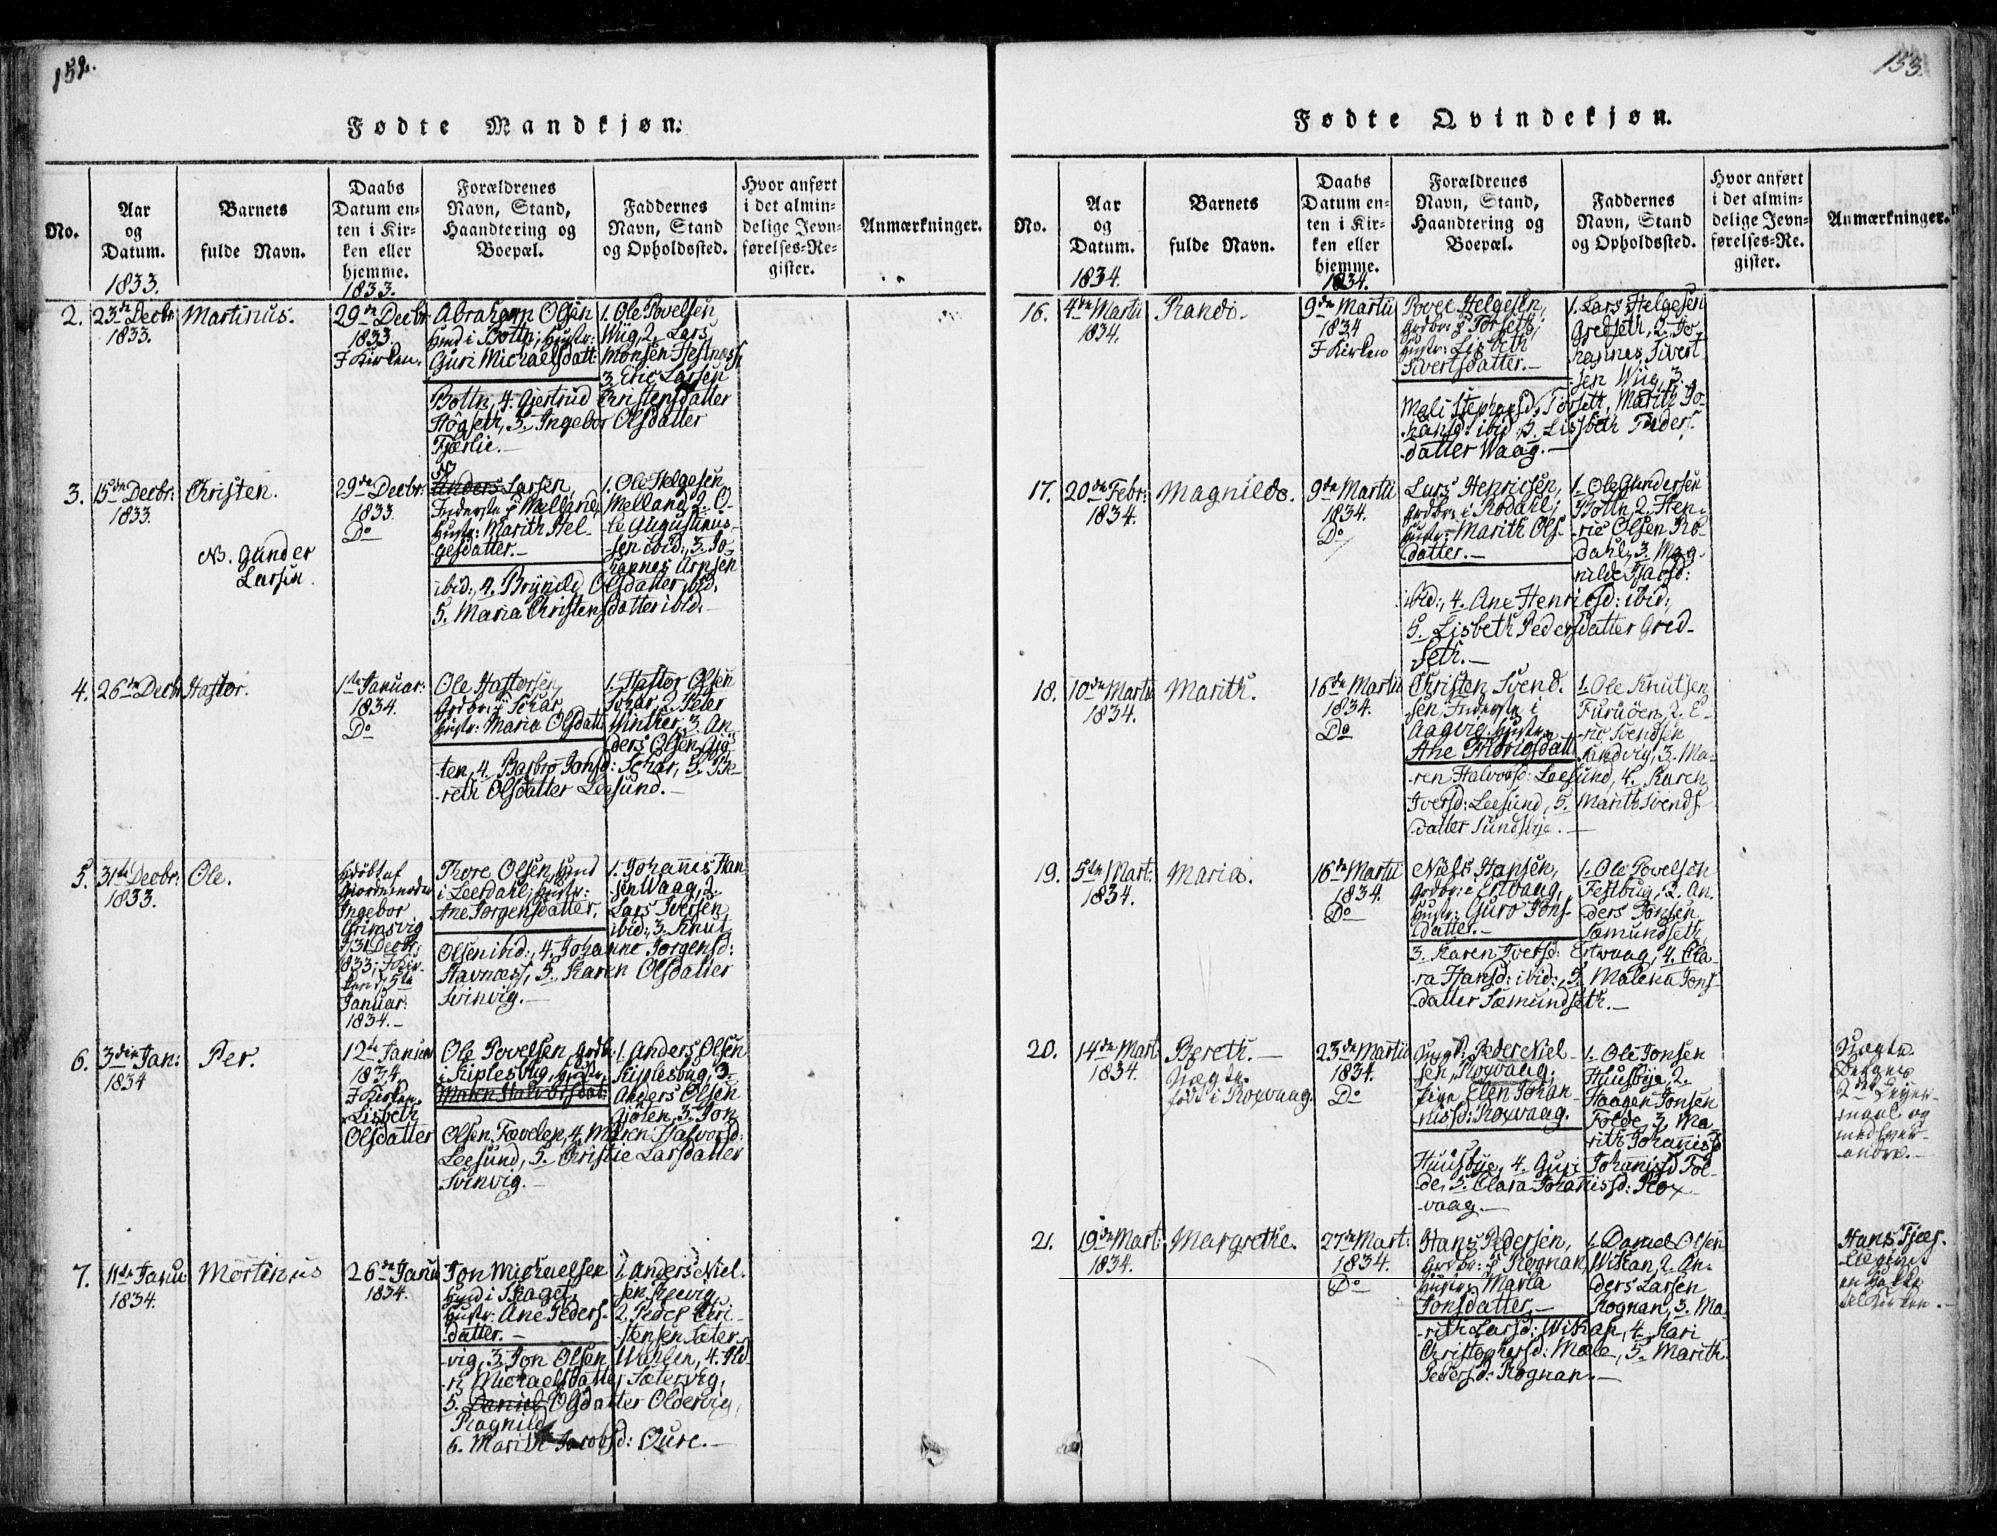 152.
Fødte Mandkjøn.
No.
Aar
og
Datum.
1833.
Barnets
fulde Navn.
Daabs
Datum en-
ten i Kir-
ken eller
hjemme.
1833.
Forældrenes
Navn, Stand,
Haandtering og
Boepæl.
Faddernes
Navn, Stand
og Opholdssted.
Hvor anført
i det almin-
delige Jevn-
førelses-Re-
gister.
Anmærkninger.
2.
23de Decbr
1833.
Martinus.
29de Decbr
1833.
I Kirken.
Abraham Olsen
Huusmd i Bottn, Hustr:
Guri Michaelsdatt
1. Ole Povelsen
Wiig, 2. Lars
Monsen Hestnæss,
3. Eric Larsen
Bottn, 4. Gjertrud Christensdatter
Høgseth, 5. Ingebor Olsdatter
Fjærlie.
3.
15de Decbr:
1833.
Christen.
N. Gunder
Larsen.
29de Decbr:
1833.
Do
N
Anders Larsen,
Inderste i Mælland,
Hustr: Marith Hel-
gesdatter.
1. Ole Helgesen
Melland, 2. O-
le Augustinus-
sen ibid:, 3. Jo-
hannes Arnsen
ibid:, 4. Bryndl Olsdatter ibid,
5. Maria Christensdatter ibid.
4.
26de Decbr
Hastor.
1ste Januar:
1834.
Do
Ole Hastorsen,
Grdbr: i Schar
Hustr: Maria Olsdatt
1. Hastor Olsen
Schar, 2. Peter
Winther, 3. An-
ders Olsen Giö-
ten, 4. Barbro Jonsd: Schar, 5. Be-
reth Olsdatter Leesund.
5.
31te Decbr:
1833.
Ole.
Hdøbt af
Giordemoder
Ingebor
Grimsvig
31 Decbr:
1833; I Kir-
ken d. 5te
Januar:
1834.
Thore Olsen, Huusmd
i Leerdahl, Hustr:
Ane Jørgensdatter.
1. Johannes Han-
sen Waag, 2.
Lars Iversen
ibid:, 3. Knut
Olsen ibid:, 4. Johanne Jørgensd:
Stavnæss, 5. Karen Olsdatter
Svinvig.
6.
3die Jan:
1834
Per.
12te Januar
1834.
I Kirken.
Lisbeth
Olsdatter
Ole Povelsen, Grdb.
i Kiplesbug, Hustr,
Maren Halvorsdat:
1. Anders Olsen
Kiplesbug, 2.
Anders Olsen
Giöten, 3. Jon
Olsen Tævelen, 4. Maren Halvorsd:
Leesund, 5. Christie Larsdatter
Svinvig.
7.
11de Janu
1834.
Mortinus
26de Janu
1834.
Jon Michaelsen
Huusmd i Skaget,
Hustr: Ane Peders-
datter.
1. Anders Niel-
sen Reevig,
2. Peder Chri-
stensen Sæter-
vig, 3. Jon Olsen Wahlen, 4. Ild-
ri Michaelsdatter Sætervig,
5. Daniel Olsdatter Oldervig,
Ragnild
6. Marith Jacobsd: Qure.
153.
Fødte Qvindekjøn.
No.
Aar
og
Datum.
1834.
Barnets
fulde Navn.
Daabs
Datum en-
ten i Kir-
ken eller
hjemme.
1834.
Forældrenes
Navn, Stand,
Haandtering og
Boepæl.
Faddernes
Navn, Stand
og Opholdssted.
Hvor anført
i det almin-
delige Jevn-
førelses-Re-
gister.
Anmærkninger.
16.
4de Martii
1834.
Randi.
9de Martii
1834
I Kirken
Povel Helgesen,
Grdbr: i Torseth,
Hustr: Lisbeth
Sivertsdatter.
1. Lars Helgesen
Gredseth, 2. Jo-
hannes Sivert
sen Wiig, 3.
Mali Stephensd, Torseth, Marith Jo-
hansd: ibid:, 5. Lisbeth Peders-
datter Waag.
17.
20de Febr:
1834.
Magnilda.
9de Martii
1834.
Do
Lars Henricsen,
Grdbr: i Rødahl,
Hustr: Marith Ols-
datter.
1. Ole Gundersen
Bottn, 2. Hen-
ric Olsen Rø-
dahl, 3. Mag-
nilde Ifarsd:
ibid:, 4. Ane Henricsd: ibid:,
5. Lisbeth Pedersdatter Gred-
seth.
18.
10de Martii
1834.
Marith.
16de Martii
1834.
Do
Christen Svend-
sen, Inderste i
Aagvig, Hustr:
Ane Fridrigsdatt
1. Ole Knutsen
Furuöen, 2. E-
ric Svendsen
Sandvig, 3. Ma-
ren Halvorsd: Leesund, 4. Karen
Iversd: Leesund, 5. Marith Svends-
datter Sundsbye.
19.
5te Mart:
1834.
Maria.
16de Martii
1834.
Do
Niels Hansen,
Grdbr: i Ertvaag,
Hustr: Guro Jons-
datter.
1. Ole Povelsen
Festbug, 2. An-
ders Jonsen
Sæmundseth,
3. Karen Iversd: Ertvaag, 4. Cla-
ra Hansd: ibid:, 5. Malena Jons-
datter Sæmundseth.
20.
14de Mart.
1834.
Bereth.
Uægte
født i Roxvaag.
23de Martii
1834.
Do
Ungk: Peder Niel-
sen, Roxvaag,
Pige Elen Johan-
nisd: Roxvaag.
1. Ole Jonsen
Huusbye, 2.
Haagen Jonsen
Folde, 3. Ma-
rith Johannisd
Huusbye, 4. Guri Johanisd Fol-
de, 5. Clara Johanisd: Rox-
vaag.
Uægte.
Begges
2det Leyer-
maal og
med hver-
andre.
21.
19de Mart:
1834.
Margrethe.
27de Mart:
1834.
Do
Hans Pedersen,
Grdbr: i Rognan,
Hustr: Maria
Jonsdatter.
1. Daniel Olsen
Wikan, 2. An-
ders Larsen
Rognan, 3. Ma-
rith Larsd: Wikan, 4. Kari
Christophersd: Mæle, 5. Marith
Pedersd: Rognan.